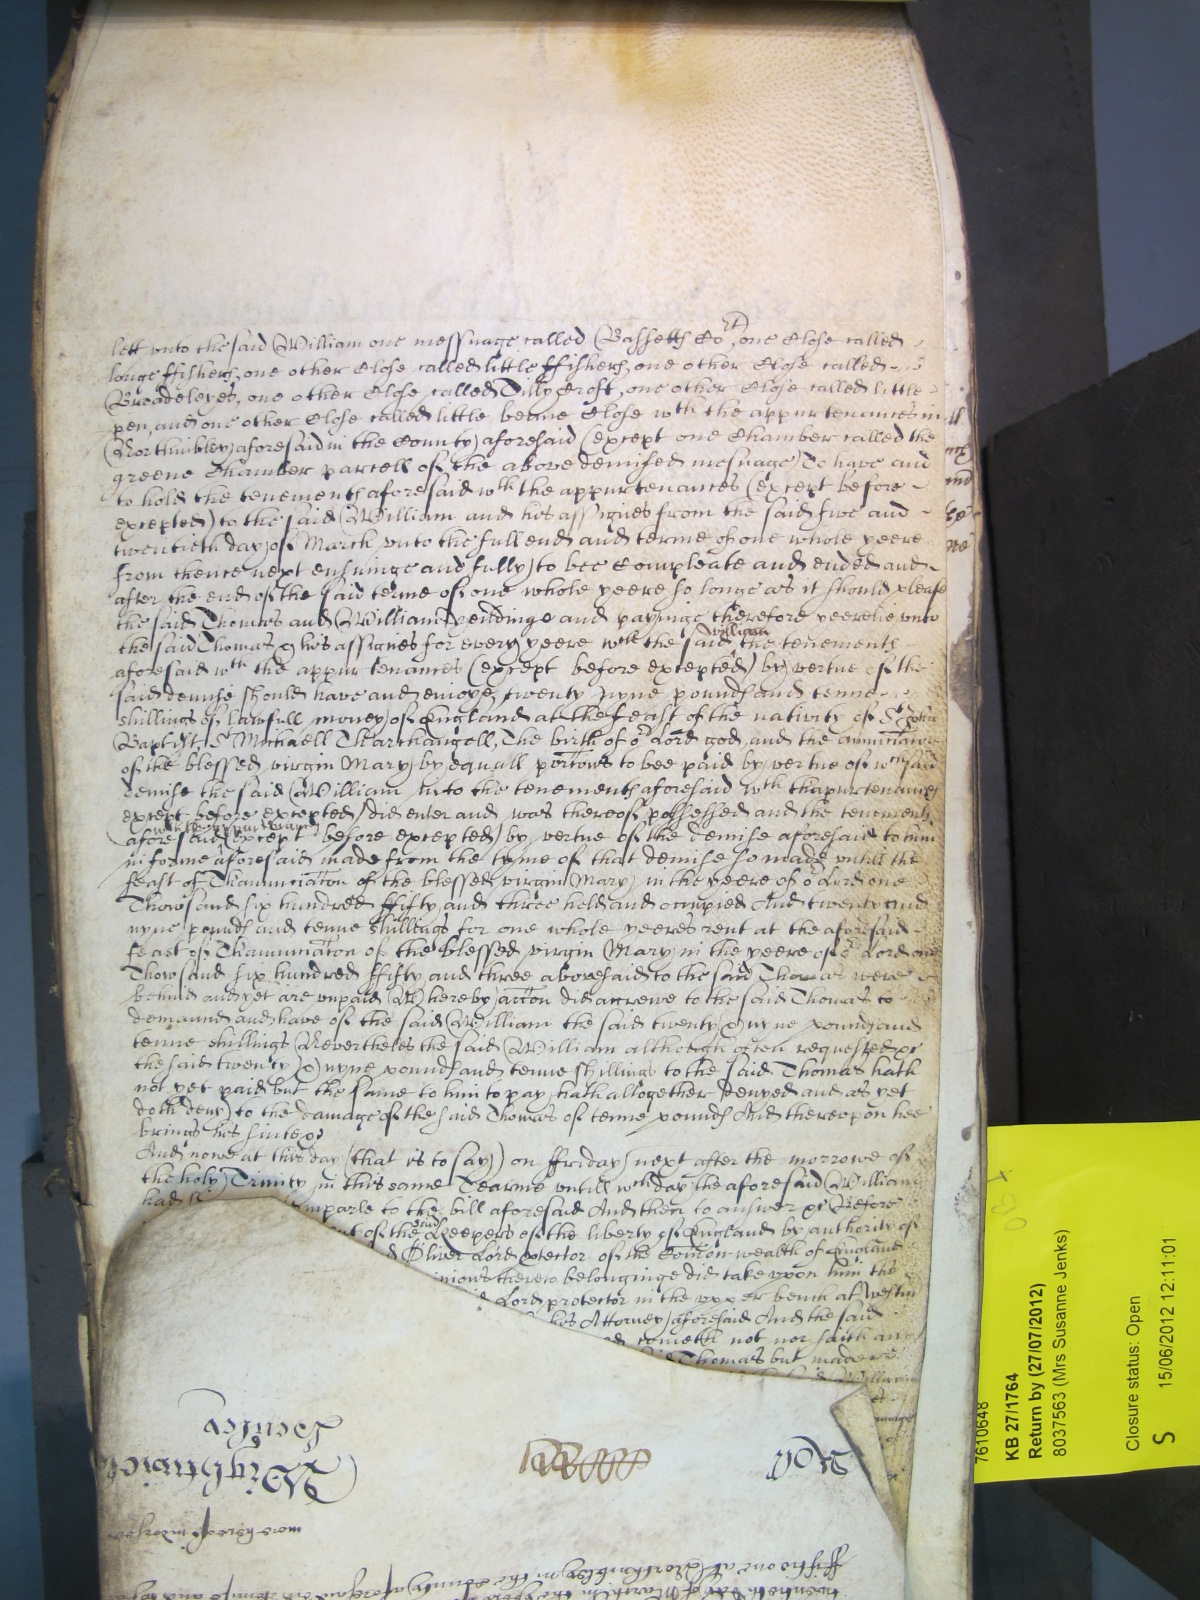 lett vnto the said William one messuage called Bassetts Co^rt, one Close called
longe ffishers, one other Close called little ffishers, one other Close called
Broadeleyes, one other Close called Tilly Croft, one other Close called little
pen, and one other Close called little beane Close wth the appurtenances in
Northimbley aforesaid in the County aforesaid (except one Chamber called the
greene Chamber parcell of the above demised mesuage) To have and
to hold the tenements aforesaid wth the appurtenances (except before
excepted) to the said William and his assignes from the said five and
twentieth day of March vnto the full end and terme of one whole yeere
from thence next ensuinge and fully to bee Compleate and ended and
after the end of the said terme of one whole yeere so longe as it should please
the said Thomas and William yeildinge and payinge therefore yeerelie vnto
the said Thomas & his assignes for every yeere wch the said William the tenements
aforesaid wth the appurtenances (except before excepted) by vertue of the
said demise should have and enioye, twenty nyne pounds and tenne
shillings of lawfull money of England at the feast of the nativity of St John
Baptist, St Michaell Tharchangell, The birth of or Lord god, and the annunciacon
of the blessed virgin Mary by equall porcons to bee paid by vertue of wch said
demise the said William into the tenements aforesaid wth thappurtenances
except before excepted did enter and was thereof possessed and the tenements
aforesaid wth thappurtenances (except before excepted) by vertue of the demise aforesaid to him
in forme aforesaid made from the tyme of that demise so made vntill the
feast of Thannunciacon of the blessed virgin Mary in the yeere of or Lord one
Thowsand six hundred ffifty and three held and occupied And twenty and
nyne pounds and tenne shillings for one whole yeeres rent at the aforesaid
feast of Thannunciacon of the blessed virgin Mary in the yeere of or Lord one
Thowsand six hundred ffifty and three abovesaid to the said Thomas were
behind and yet are vnpaid Whereby accon did accrewe to the said Thomas to
demaund and have of the said William the said twenty & nyne pounds and
tenne shillings Nevertheles the said William although often requested &c
the said twenty & nyne pounds and tenne shillings to the said Thomas hath
not yet paid but the same to him to pay hath altogether denyed and as yet
doth deny to the damage of the said Thomas of tenne pounds And thereupon hee
brings his suite &c
And nowe at this day (that is to say) on ffriday next after the morrowe of
the holy Trinity in this same Tearme vntill wch day the aforesaid William
had imparle to the bill aforesaid And then to answer &c Before
of the Keepers of the liberty of England by authority of
Oliver Lord Protector of the Comon wealth of England
thereto belonginge did take vpon him the
Lord protector in the vpper bench at Westm
his Attorney aforesaid And the said
cometh not nor saith any
Thomas but made
said William
more
Roll
Wightwick
7610648
KB 27/1764
Return by (27/07/2012)
8037563 (Mrs Susanne Jenks)
Closure status: Open
S 15/06/2012 12:11:01